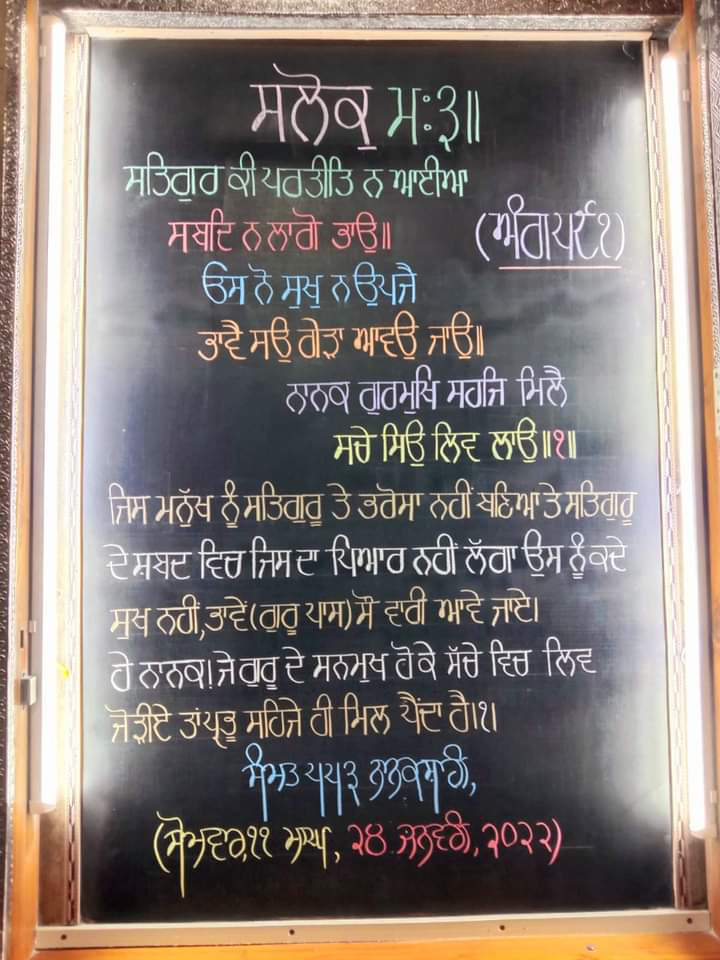 ਸਲੋਕੁ ਮਃ ੩॥
ਸਤਿਗੁਰ ਕੀ ਪਰਤੀਤਿ ਨ ਆਈਆ
ਸਬਦਿ ਨ ਲਾਗੋ ਭਾਉ॥
(ਅੰਗ ੫੯੧)
ਓਸ ਨੋ ਸੁਖੁ ਨ ਉਪਜੈ
ਭਾਵੈ ਸਉ ਗੇੜਾ ਆਵਉ ਜਾਉ॥
ਨਾਨਕ ਗੁਰਮੁਖਿ ਸਹਜਿ ਮਿਲੈ
ਸਚੇ ਸਿਉ ਲਿਵ ਲਾਉ॥੧॥
ਜਿਸ ਮਨੁੱਖ ਨੂੰ ਸਤਿਗੁਰੂ ਤੇ ਭਰੋਸਾ ਨਹੀਂ ਬਣਿਆ ਤੇ ਸਤਿਗੁਰੂ
ਦੇ ਸ਼ਬਦ ਵਿਚ ਜਿਸ ਦਾ ਪਿਆਰ ਨਹੀਂ ਲੱਗਾ ਉਸ ਨੂੰ ਕਦੇ
ਸੁਖ ਨਹੀਂ, ਭਾਵੇਂ (ਗੁਰੂ ਪਾਸ) ਸੌ ਵਾਰੀ ਆਵੇ ਜਾਏ।
ਹੇ ਨਾਨਕ! ਜੇ ਗੁਰੂ ਦੇ ਸਨਮੁਖ ਹੋ ਕੇ ਸੱਚੇ ਵਿਚ ਲਿਵ
ਜੋੜੀਏ ਤਾਂ ਪ੍ਰਭੂ ਸਹਿਜੇ ਹੀ ਮਿਲ ਪੈਂਦਾ ਹੈ।੧।
ਸੰਮਤ ੫੫੩ ਨਾਨਕਸ਼ਾਹੀ,
(ਸੋਮਵਾਰ, ੧੧ ਮਾਘ, ੨੪ ਜਨਵਰੀ, ੨੦੨੨)